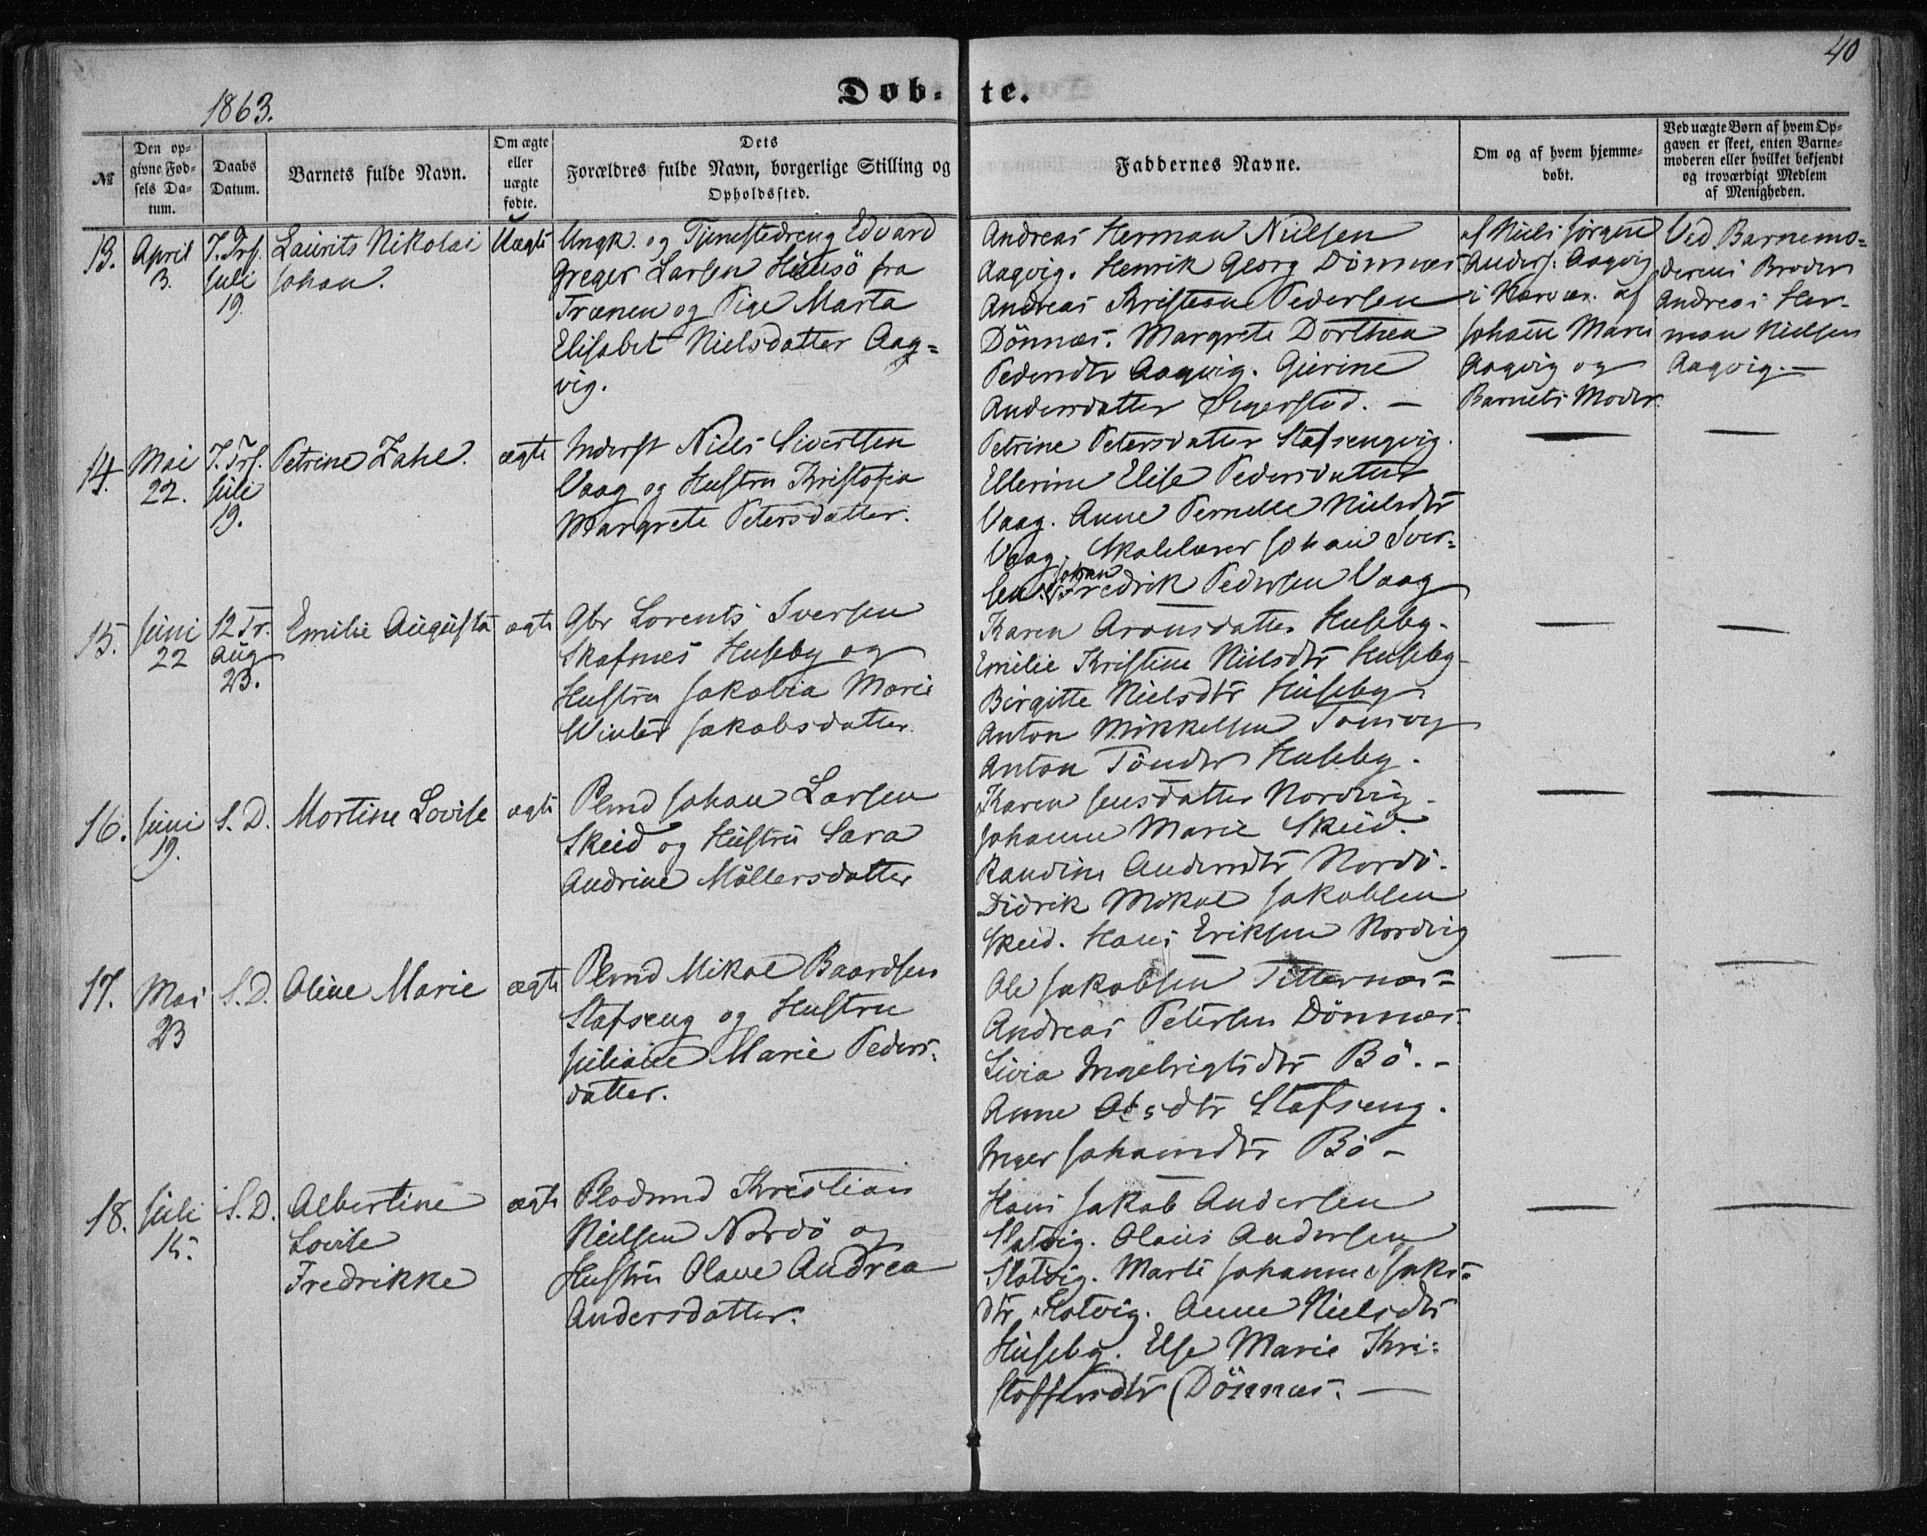 40
1863.
Døb-te.
№
Den opgivne Fødsels Datum.
Daabs Datum.
Barnets fulde Navn.
Om ægte eller uægte fødte.
Dets Forældres fulde Navn, borgerlige Stilling og Opholdssted.
Faddernes Navne.
Om og af hvem hjemmedøbt.
Ved uægte Børn af hvem Opgaven er skeet, enten Barnemoderen eller hvilket bekjendt og troværdigt Medlem af Menigheden.
13.
April
3.
7. Trf.
Juli
19.
Laurits Nikolai
Johan.
Uægte
Ungk. og Tjenestedreng Edvard
Greger Larsen Huusö fra
Trænen og Pige Marta
Elisabet Nielsdatter Aag=
vig.
Andreas Herman Nielsen
Aagvig. Henrik Georg Dönnæs.
Andreas Kristian Pedersen
Dönnæs. Margrete Dorthea
Pedersdtr Aagvig. Gjerine
Andersdatter Segerstad. —
af Niels Jörgen
Anders. Aagvig
i Nærvær. af
Johan Marie
Aagvig og
Barnets Moder.
Ved Barnemo=
derens Broder
Andreas Her-
man Nielsen
Aagvig. —
14.
Mai
22.
7. Trf.
Juli
19.
Petrine Zahl.
ægte
Inderst Niels Sivertsen
Vaag og Hustru Kristofia
Margrete Petersdatter.
Petrine Petersdatter Stafsengvig.
Ellerine Elise Pedersdatter
Vaag. Anne Pernelle Nielsdtr
Vaag. Skolelærer Johan Iver=
sen. Johan Fredrik Pedersen Vaag
—
—
15.
Juni
22
12 Tr.
Aug
23.
Emilie Augusta
ægte
Gbr Lorents Iversen
Skafnes Huseby og
Hustru Jakobia Marie
Winter Jakobsdatter.
Karen Aronsdatter Huseby.
Emilie Kristine Nielsdtr Huseby
Birgitte Nielsdtr Huseby
Anton Mikkelsen
Anton Tönder Huseby.
—
—
16.
Juni
19.
S. D.
Mortine Lovise
ægte
Plmd Johan Larsen
Skeid og Hustru Sara
Andrine Möllersdatter
Karen Jensdatter Nordvig.
Johanne Marie Skeid.
Randine Andersdtr Nordö.
Didrik Mikal Jakobsen
Skeid. Hans Eriksen Nordvig
—
—
17.
Mai
23
S. D.
Oline Marie
ægte
Plmd Mikal Baardsen
Stafseng og Hustru
Juliane Marie Peders=
datter.
Ole Jakobsen Titternæs=
Andreas Petersen Dönnæs.
Livia Ingebrigtsdtr Bö. —
Anne Olsdtr Stafseng.
Inger Johansdtr Bö —
—
—
18.
Juli
15.
S. D.
Albertine
Lovise
Fredrikke
ægte
Pladsmd Kristian
Nielsen Nordö og
Hustru Olave Andrea
Andersdatter.
Hans Jakob Andersen
Slotvig. Olaus Andersen
Slotvig. Marte Johanne Isaks=
dtr Slotvig. Anne Nielsdtr
Huseby. Else Marie Kri=
stoffersdtr Dönnæs. —
—
—